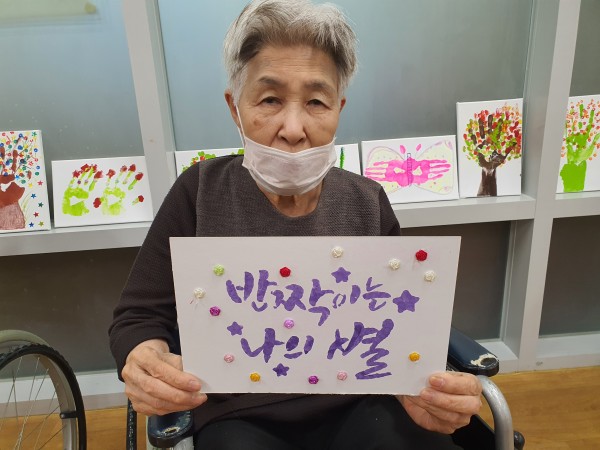 반짝이는
나의 별